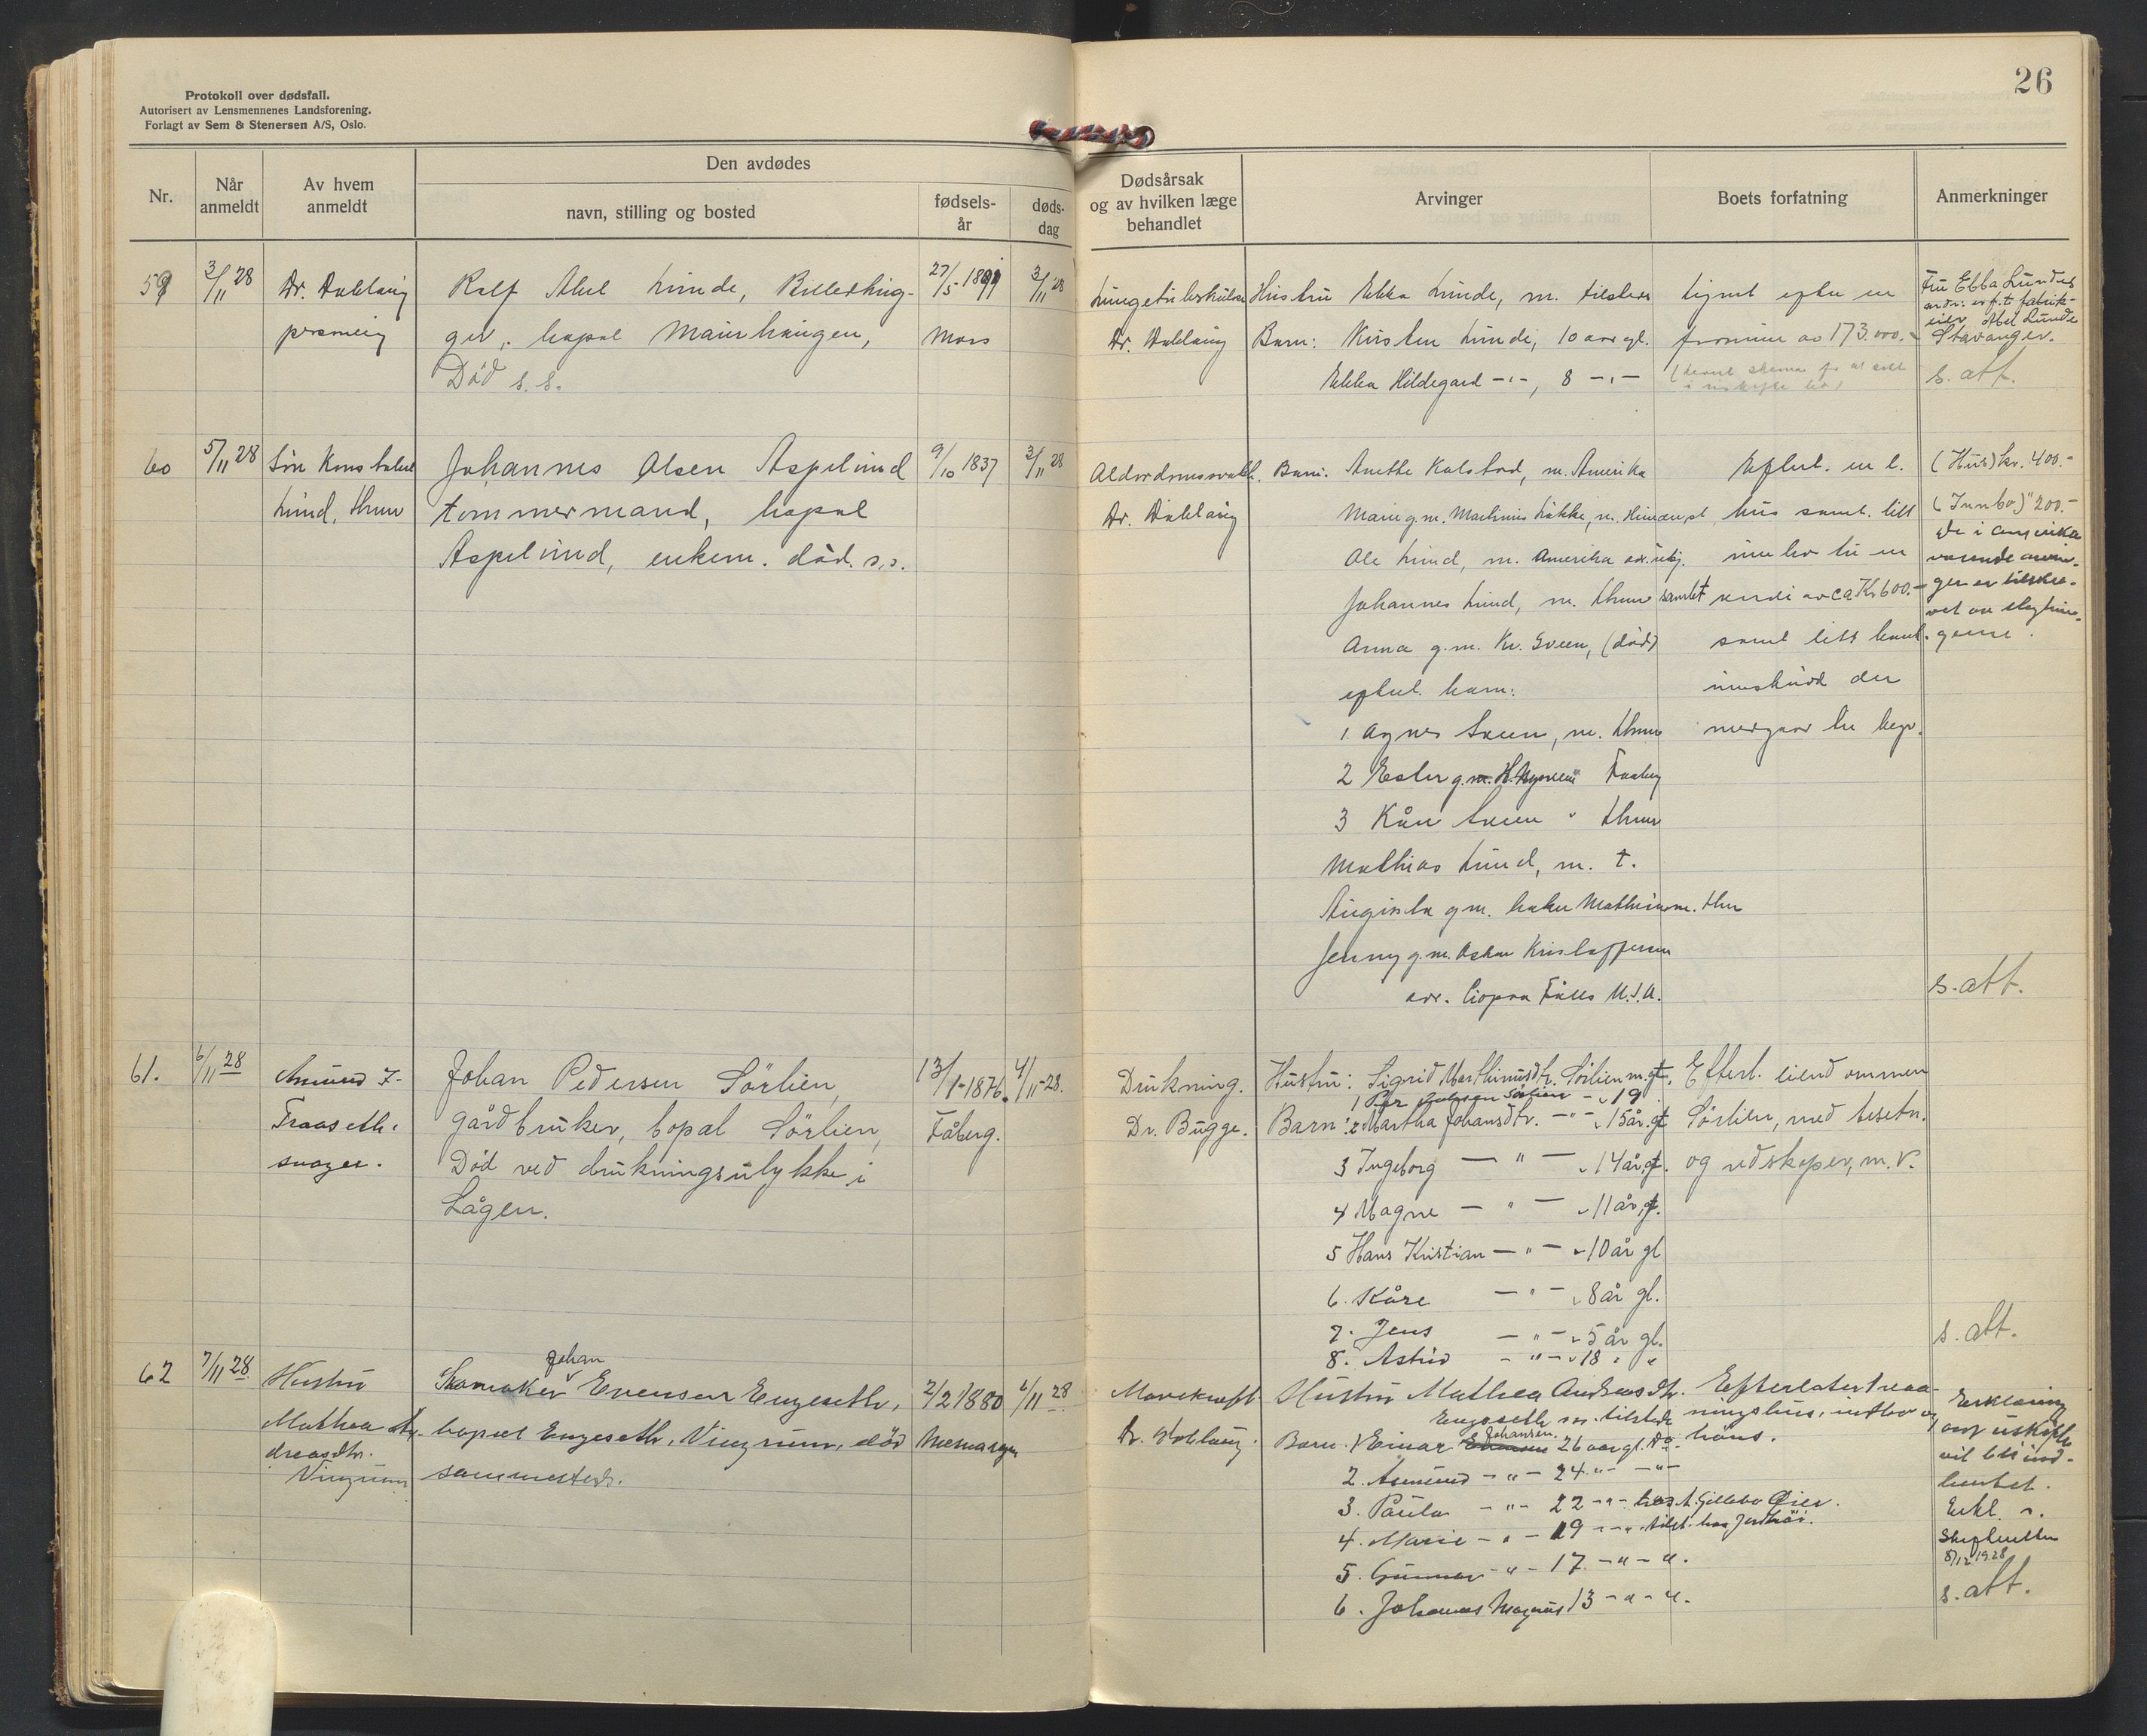 Protokoll over dødsfall.
Autorisert av Lensmennenes Landsforening.
Forlagt av Sem & Stenersen A/S, Oslo.
26
Nr.
Når anmeldt
Av hvem anmeldt
Den avdødes
navn, stilling og bosted
fødsels-år
døds-dag
Dødsårsak og av hvilken læge behandlet
Arvinger
Boets forfatning
Anmerkninger
59
3/11 28
Dr. Dahlaug
Rolf Abel Lunde, Billedhug-
ger, bopæl Maurhaugen,
Død s. s.
27/5 1891
Moss
3/11 28
Lungetuberkulose
Dr. Dahlaug
Hustru Ebba Lunde, m. tilsteds
Barn: Kirsten Lunde, 10 aar gl.
Ebba Hildegard -"-, 8 -"-
Lignet efter en
formue av 173.000.-
Fru Ebba Lundes
fabrik-
eier Abel Lunde
Stavanger.
s. att.
60
5/11 28
Søn Konstabel
Lund, Lhmr
Johannes Olsen Aspelund
tømmermand, bopæl
Aspelund, enkem. død. s.s.
9/10 1837
3/11 28
Alderdomssvakh.
Dr. Dahlaug
Barn: Anethe Kalstad, m. Amerika
Marie g.m. Martinius Løkke, m.
Ole Lund, m. Amerika adr.
Johannes Lund, m. Lhmr
Anna g.m. Kr. Sveen, (død)
efterl. barn:
1. Agnes Sveen, m. Lhmr
2 Ester g.m. H. Faaberg
3 Kåre Sveen " Lhmr
Mathias Lund, m. t.
Augusta g.m. m. Lhmr
Jenny g.m. Oskar Kristoffersen
adr. Falls U.S.A.
Efterl. en l.
hus samt litt
innbo til en
samlet verdi av ca Kr 600.-
samt litt bank-
innskudd der
medgaar til begr.
(Hus) kr. 400.-
(Innbo) " 200.-
De i Amerika
værende arvin-
ger er tilskre-
vet av slegtnin-
gerne.
s. att.
61.
6/11 28
Amund J.
Fraaseth.
svoger.
Johan Pedersen Sörlien,
gårdbruker, bopæl Sörlien,
Død ved drukningsulykke i
Lågen.
13/1-1876.
Fåberg.
4/11-28.
Drukning.
Dr. Bugge.
Hustru: Sigrid Marthinusdtr. Sörlien m.gt.
1 Per Johansen Sörlien - " 19
Barn: 2 Martha Johansdtr. -"- " 15 år. gt
3 Ingeborg - " - " 14 år. gt.
4 Magne - " - " 11 år. gt.
5 Hans Kristian - " - " 10 år gl
6. Kåre - " - " 8 år gl.
7. Jens - " - " 5 år gl.
8. Astrid - " - " 18 " "
Efterl. eiendommen
Sörlien, med besetn.
og redskaper, m.v.
s. att.
62
7/11 28
Hustru
Mathea An-
dreasdtr.
Vingrum
Skomaker Johan Evensen Engeseth,
bopæl Engeseth, Vingrum, død
sammesteds.
2/2 1880
6/11 28
Dr. Dahlaug.
Hustru Mathea Andreasdtr.
Engeseth m. tilstede
Barn: 1 Einar Johansen 26 aar gl. Do
2. Amund -"- 24 -"- -"-
3. Paula -"- 22 -"- hos A. Gillebo Øier.
4. Marie -"- 19 -"-
5. Gunnar -"- 17. -"- ".
6. Johannes Magnus 13 -"- ".
Efterlater vaa-
ningshus, indbo og
Erklæring
om uskifte
vil bli ind-
hentet.
Erkl.
Skifteretten
8/12 1928
s. att.